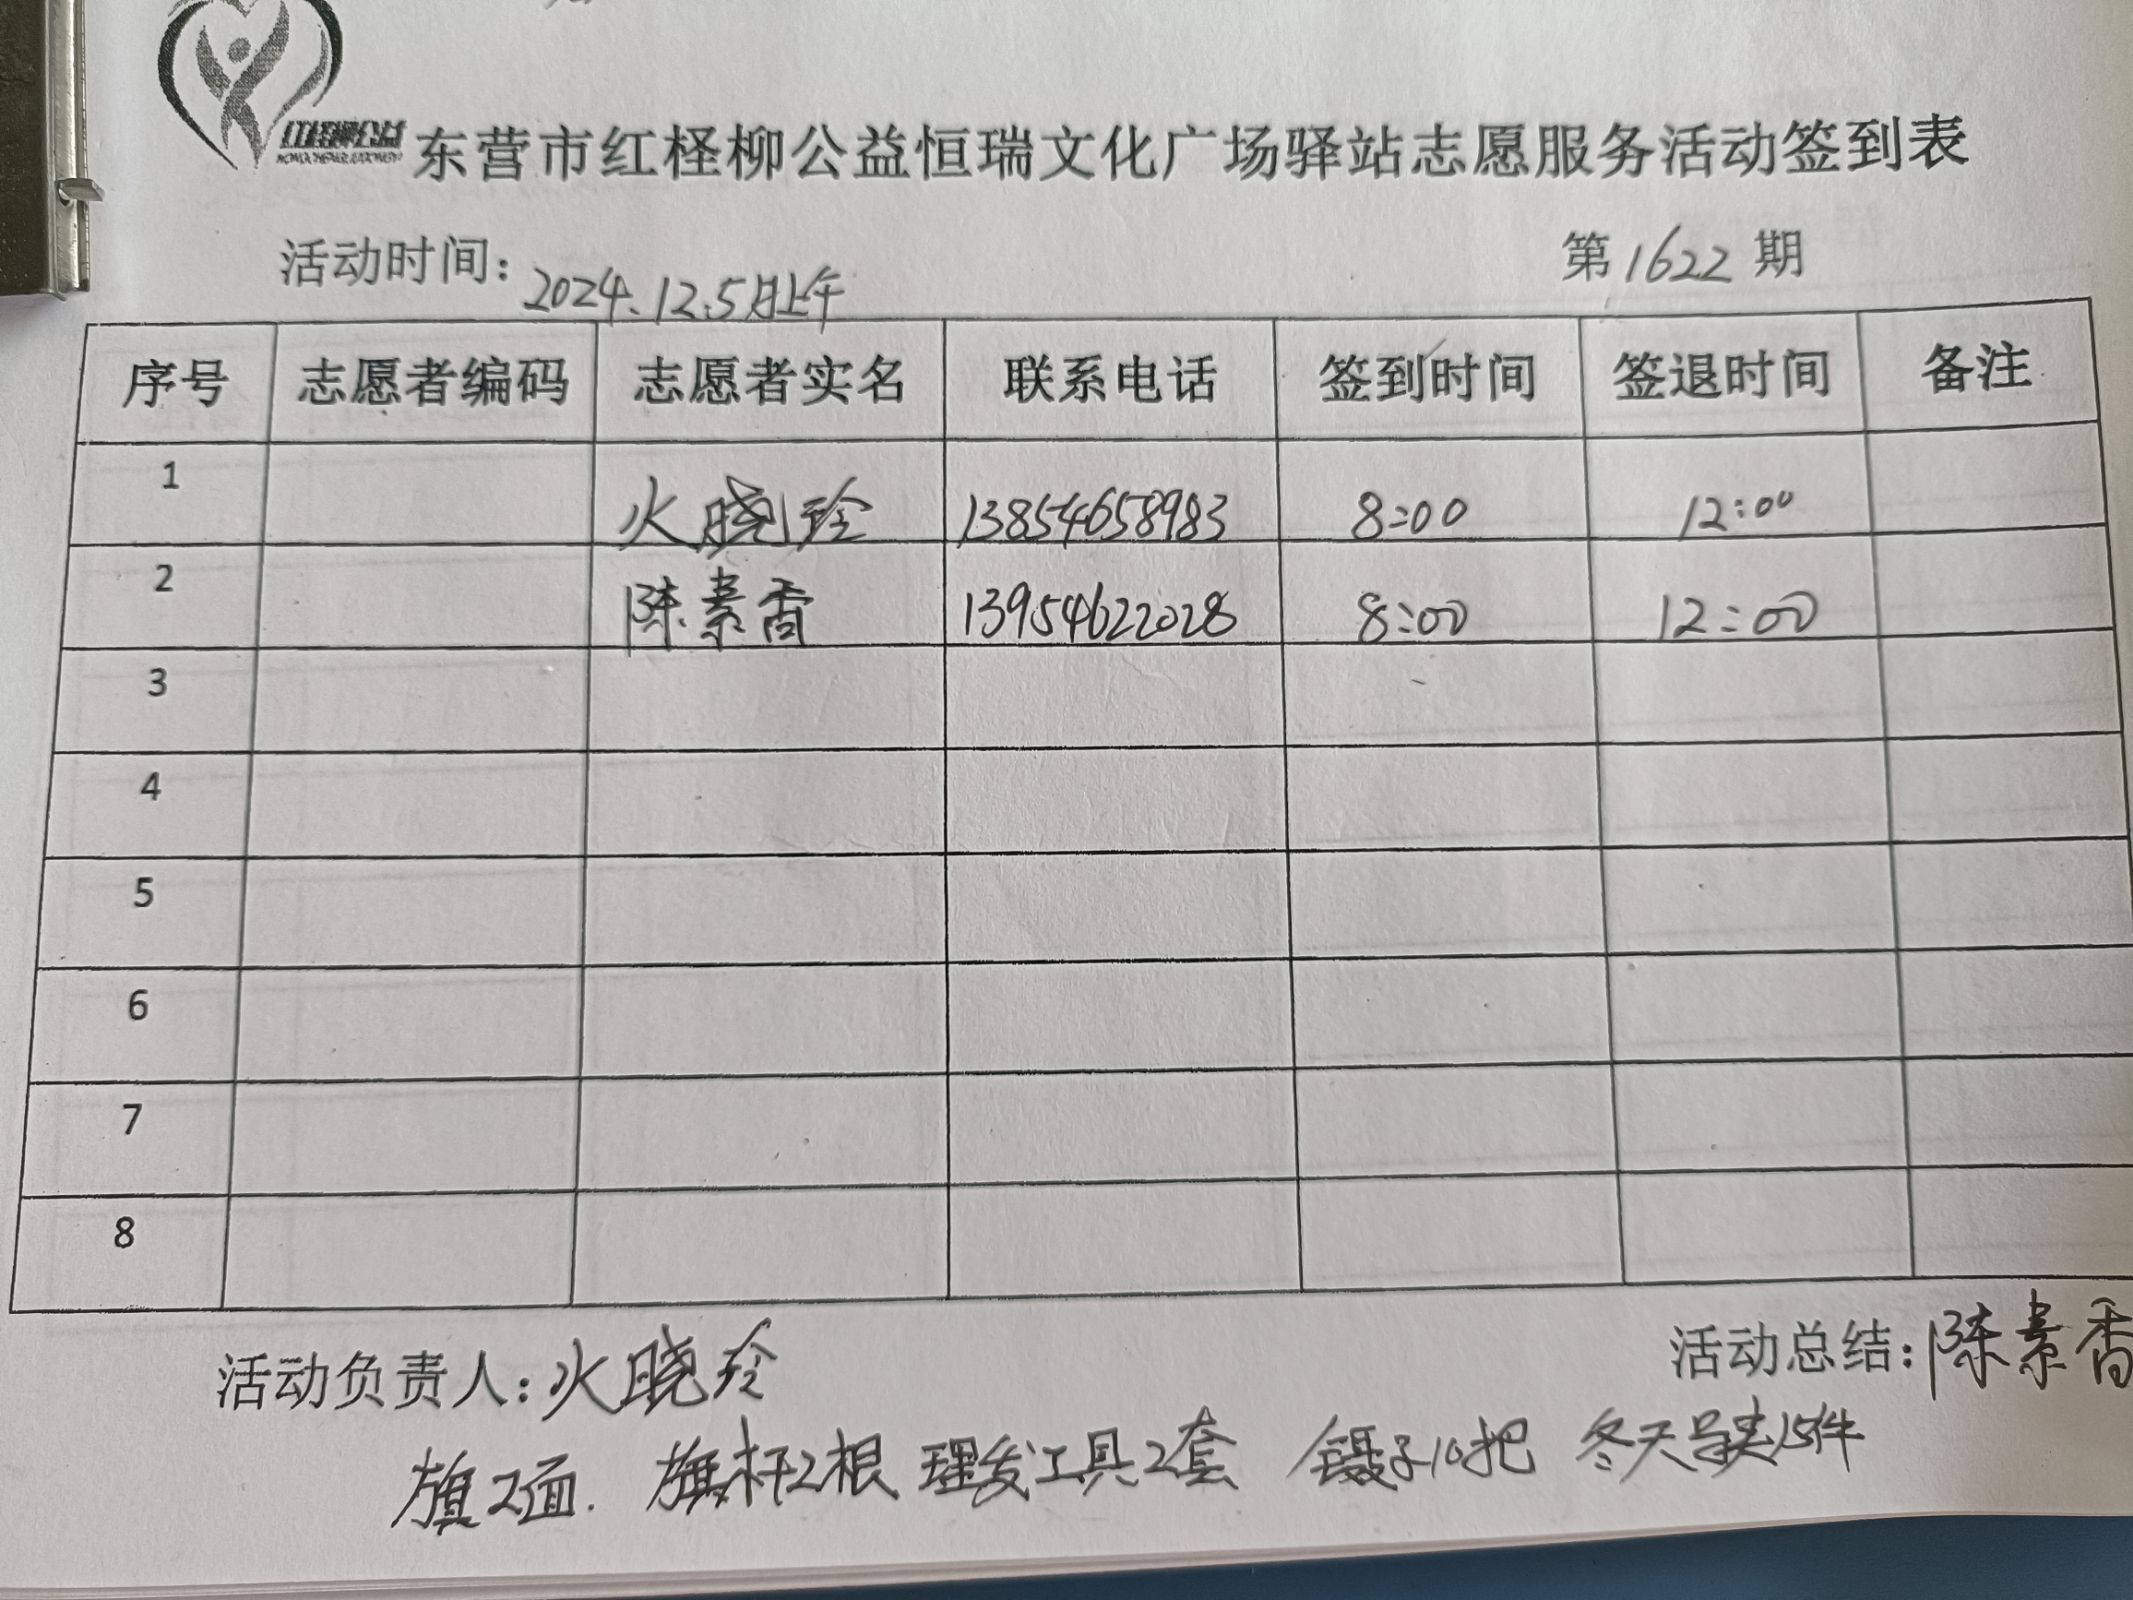 红柽柳公益
东营市红柽柳公益恒瑞文化广场驿站志愿服务活动签到表
活动时间：2024.12.5日上午 第1622期
序号 志愿者编码 志愿者实名 联系电话 签到时间 签退时间 备注
1 火晓玲 13854658983 8:00 12:00
2 陈素香 13954622028 8:00 12:00
3
4
5
6
7
8
活动负责人：火晓玲 活动总结：陈素香
旗2面. 旗杆2根 理发工具2套 镊子10把 冬天 15件